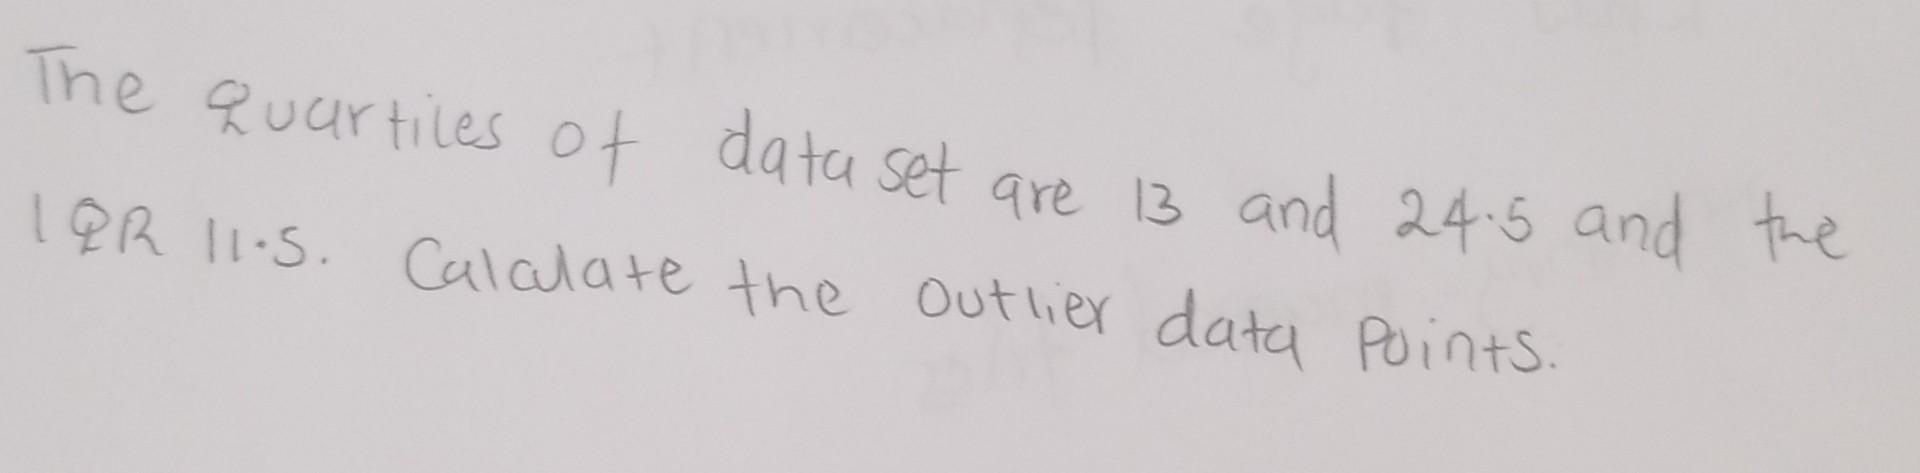 The Quartiles of data set are 13 and 24.5 and the
IQR 11.5. Calculate the outlier data Points.